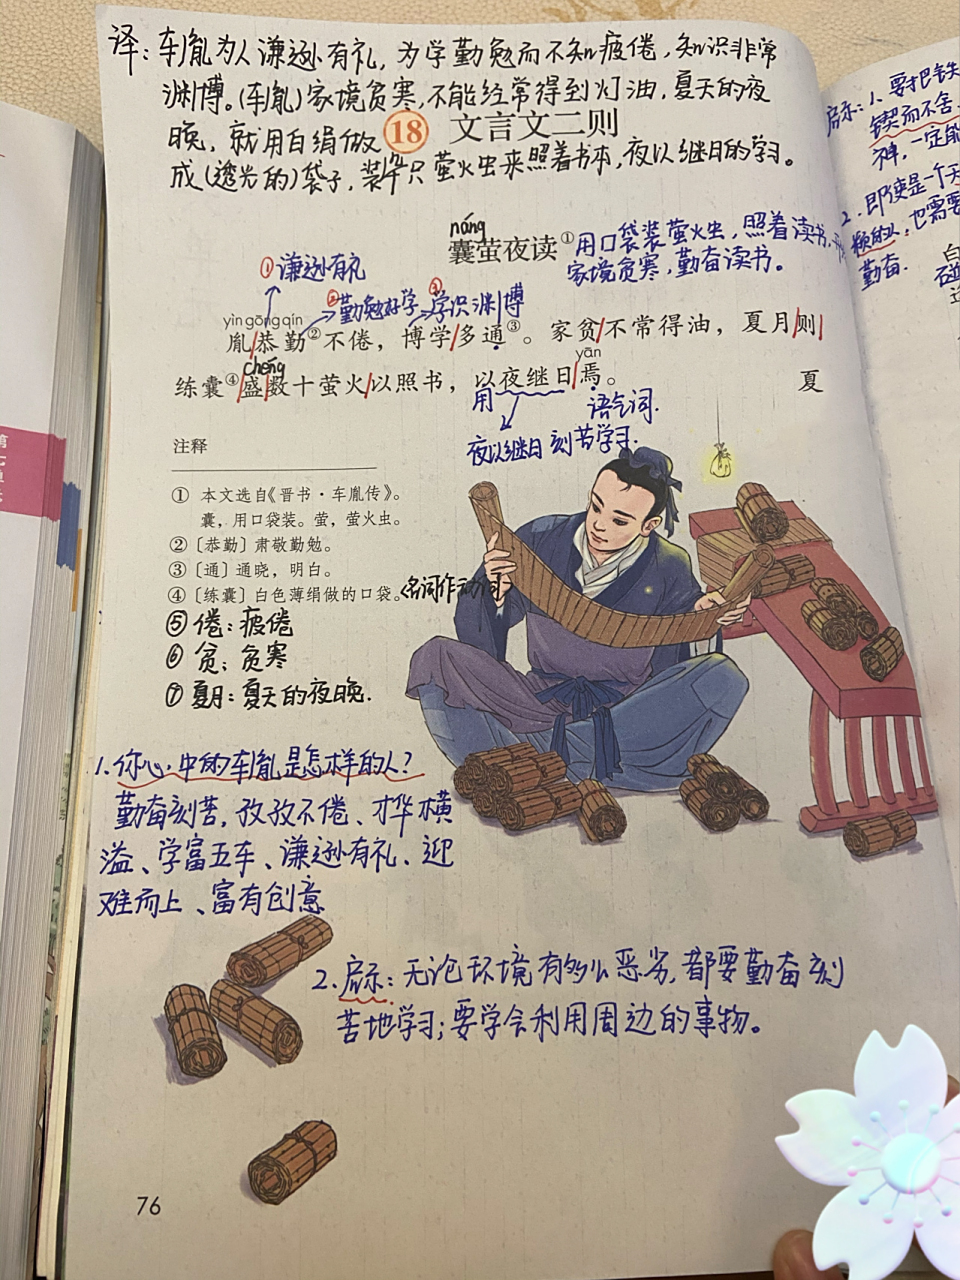 译：车胤为人谦逊有礼，为学勤勉而不知疲倦，知识非常
渊博。(车胤)家境贫寒，不能经常得到灯油，夏天的夜
晚，就用白绢做
18 文言文二则
成(透光的)袋子，装几只萤火虫来照着书本，夜以继日的学习。
náng
囊萤夜读①
用口袋装萤火虫，照着读书。
家境贫寒，勤奋读书。
①谦逊有礼
②勤勉好学
③学识渊博
yìn gōng qín
胤/恭勤②不倦，博学/多通③。家贫/不常得油，夏月/则/
chéng
yān
练囊④/盛/数十萤火/以照书，以夜继日/焉。
夏
用
语气词.
夜以继日 刻苦学习.
注释
① 本文选自《晋书·车胤传》。
囊，用口袋装。萤，萤火虫。
②〔恭勤〕肃敬勤勉。
③〔通〕通晓，明白。
④〔练囊〕白色薄绢做的口袋。<名词作动词>
⑤ 倦：疲倦
⑥ 贫：贫寒
⑦ 夏月：夏天的夜晚.
1.你心中的车胤是怎样的人？
勤奋刻苦，孜孜不倦、才华横
溢、学富五车、谦逊有礼、迎
难而上、富有创意
2.启示：无论环境有多么恶劣，都要勤奋刻
苦地学习；要学会利用周边的事物。
76
启示：1、要把铁
锲而不舍
神，一定能
2.即使是一个天
也需要
勤奋.